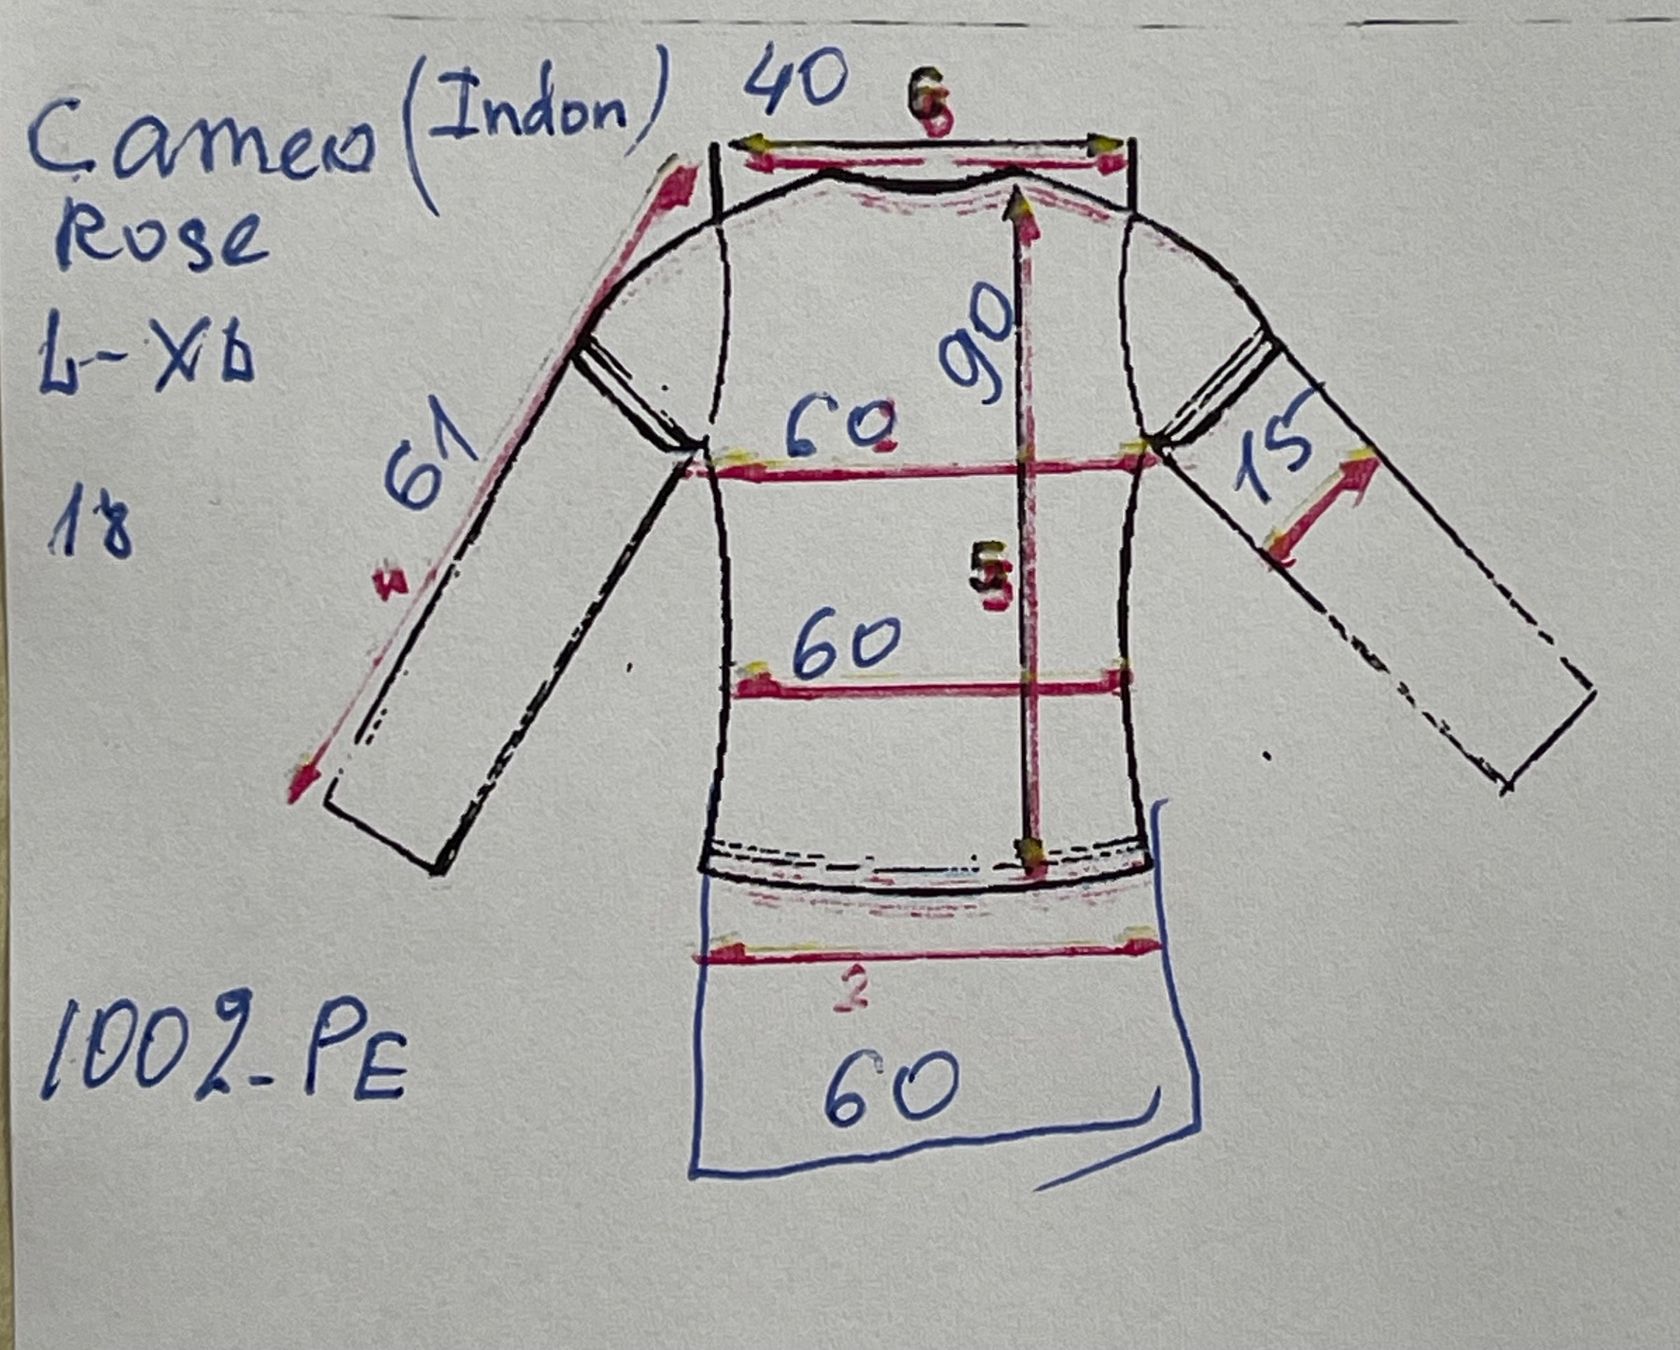 Cameo (Indon)
Rose
L-XL
18
40
6
61
4
60
90
15
5
60
2
60
100% PE